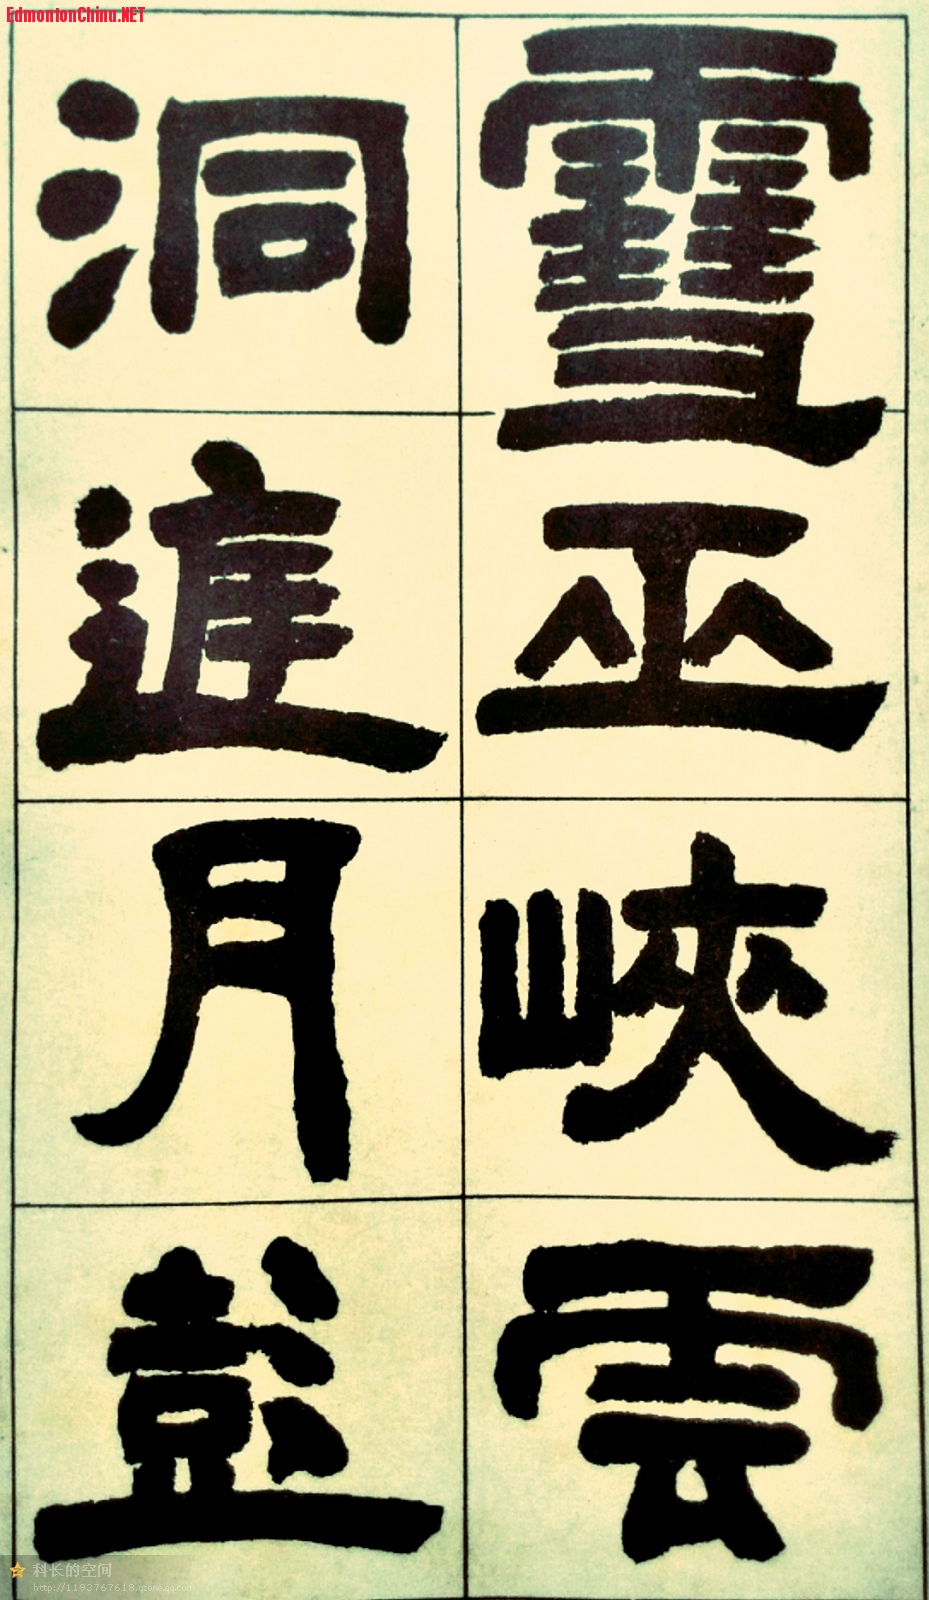 EdmontonChina.NET
雪巫峽雲
洞庭月彭
科长的空间
http://1193767618.qzone.qq.com